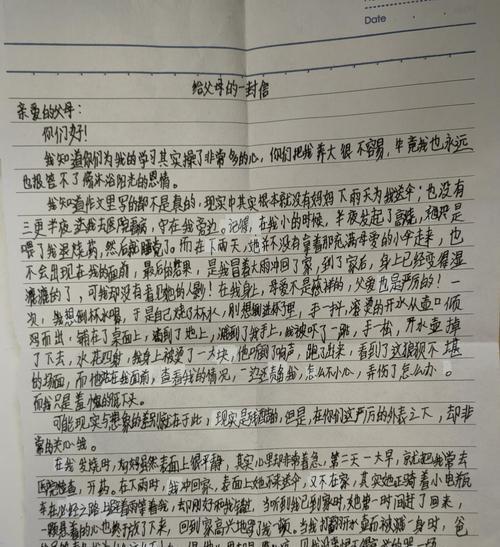 Date
给父母的一封信
亲爱的父母:
你们好!
我知道你们为我的学习其实操了非常多的心,你们把我养大很不容易,毕竟我也永远
也报答不了你沐浴阳光的恩情。
我知道作文里写的都不是真的,现实中其实根本就没有妈妈下雨天为我送伞;也没有
三更半夜送我去医院看病,守在我旁边。记得,在我小的时候,半夜发起了高烧,她只是
喂了我退烧药,然后就睡了。而在下雨天,她并不没有拿着那充满母爱的小伞走来,也
不会出现在我的面前,最后的结果,是我冒着大雨冲回了家,到了家后,身上已经变得湿
漉漉的了,可我却没有看见她的人影!在我身上,母爱不是慈祥的,父爱也是严厉的!一
次,我想倒杯水喝,于是自己烧了杯水,刚想倒进杯子里,手一抖,滚烫的开水从壶口倾
泻而出,铺在了桌面上,溅到了地上,溅到了我手上,我被吓了一跳,手一松,开水壶掉
了下去,水花四射,我身上被烫了一大块,他听到响声,跑了出来,看到了这狼狈不堪
的场面,而他站在我面前,查看我的情况,一边责备我,怎么不小心,弄伤了怎么办。
而我只是羞愧的低下头。
可能现实与想象的差别就在于此,现实是残酷的,但是,在你们这严厉的外表之下,却非
常的关心我。
在我发烧时,妈妈虽然表面上很平静,其实心里却非常着急,第二天一大早,就把我带去
医院检查,开药。在下雨时,我冲回家,表面上她不来送伞,又不在家,其实她正骑着小电瓶
车在必经之路上冒着雨等着我,却刚好和我错过,当听到我已到家时,她第一时间赶了回来,
一颗悬着的心也终于放了下来,回到家高兴地骂了我一顿。当我打翻开水壶而被烫一身时,爸